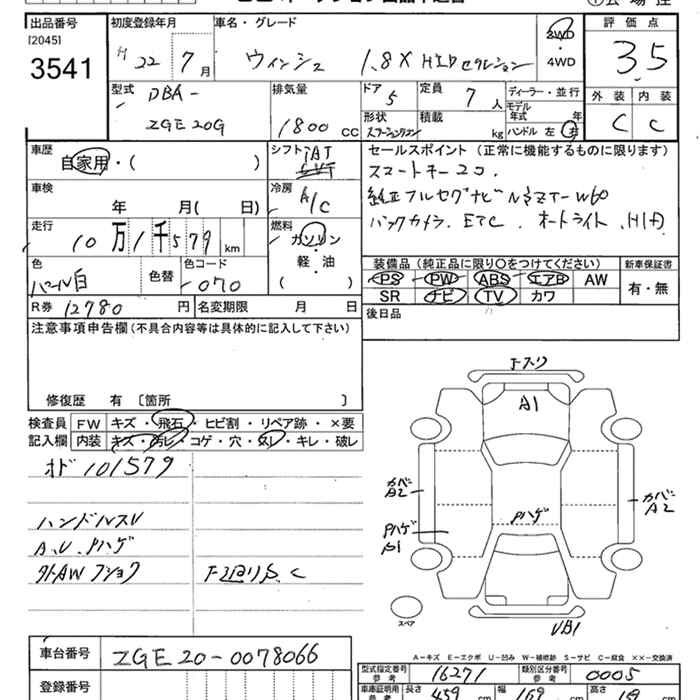 出品番号 初度登録年月 車名・グレード 評価点
[2045]
3541
H 22年 7月 ウィッシュ 1.8X HIDセレクション 2WD・4WD 3.5
型式 DBA-ZGE20G
排気量 1800 CC
ドア 5 定員 7人 ディーラー・並行
モデル年式 年
形状 ステーションワゴン 積載 kg ハンドル 左 右
外装 内装
C C
車歴 自家用・( )
シフト IAT CVT
セールスポイント(正常に機能するものに限ります)
スマートキー2コ.
純正フルセグナビNSZT-W60
バックカメラ. ETC. オートライト. HID
車検 年 月( 日)
冷房 A/C
走行 10万1千579 km
燃料 ガソリン 軽・油 ( )
色 パール白 色替 色コード 070
装備品(純正品に限り〇をつけてください) 新車保証書
PS PW ABS エアB AW 有・無
SR ナビ TV カワ
R券 12780 円 名変期限 月 日
後日品
注意事項申告欄(不具合内容等は具体的に記入して下さい)
修復歴 有 〔箇所 〕
検査員記入欄 FW キズ・飛石・ヒビ割・リペア跡・×要
内装 キズ・汚レ・コゲ・穴・スレ・キレ・破レ
オド 101579
ハンドルスレ
A.U.Pハゲ
外AWフショク
下回りS.C
A1
カバーA2
カバーA2
Pハゲ
Pハゲ
B1
スペア
UB1
A=キズ E=エクボ U=凹み W=補修跡 S=サビ C=腐食 ××=交換済
車台番号 ZGE20-0078066
登録番号
型式指定番号 参考 16271 類別区分番号 参考 0005
車庫証明用 参考 長さ 459 cm 幅 169 cm 高さ 159 cm